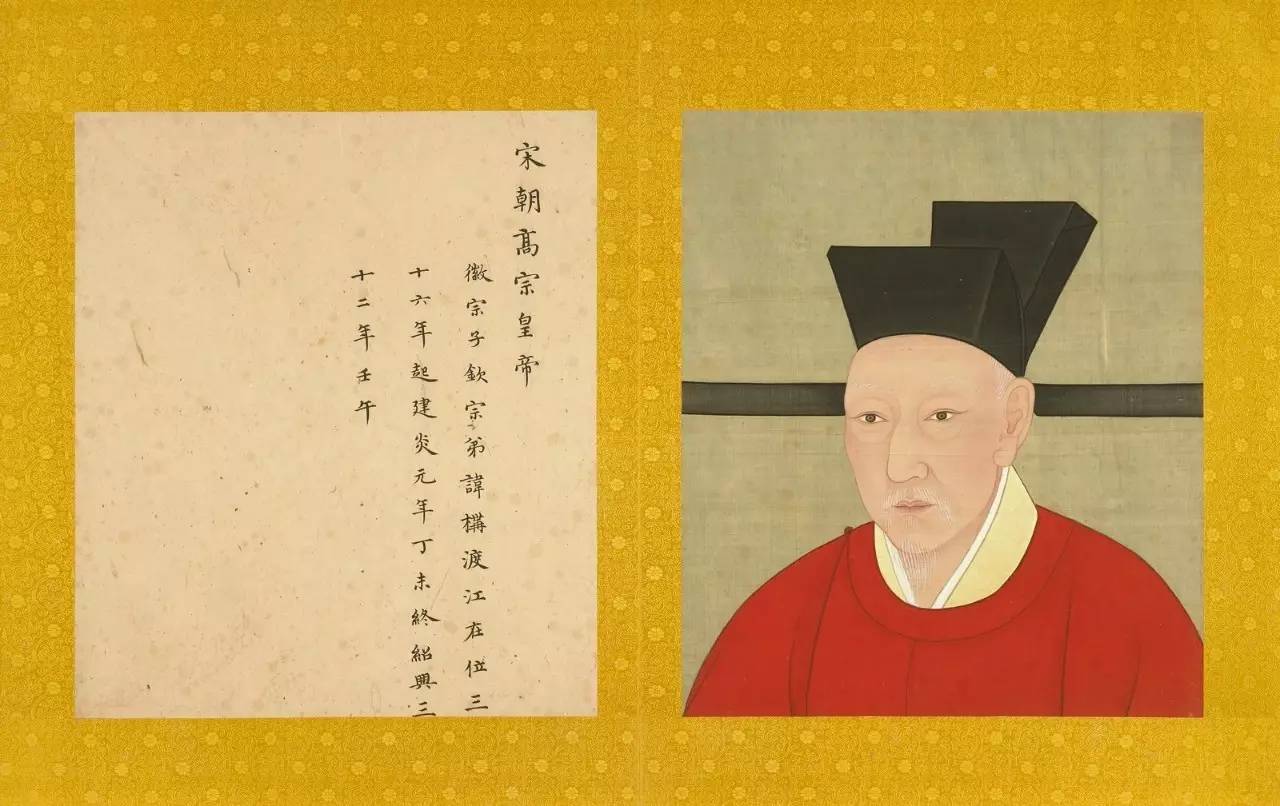 宋朝髙宗皇帝
徽宗子欽宗弟諱構渡江在位三
十六年起建炎元年丁未終紹興三
十二年壬午